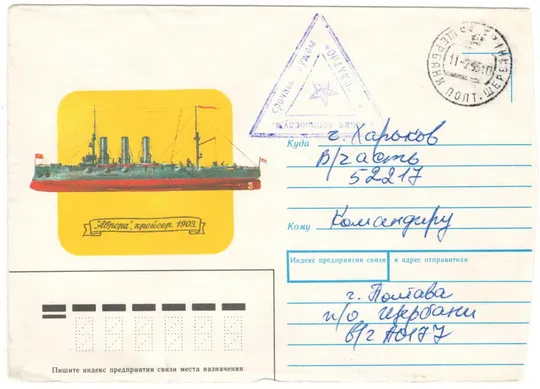 "Аврора", крейсер. 1903.
Куда
г. Харьков
В/часть
52217
Кому
Командиру
Индекс предприятия связи и адрес отправителя
г. Полтава
п/о Щербани
В/ч А0177
Пишите индекс предприятия связи места назначения